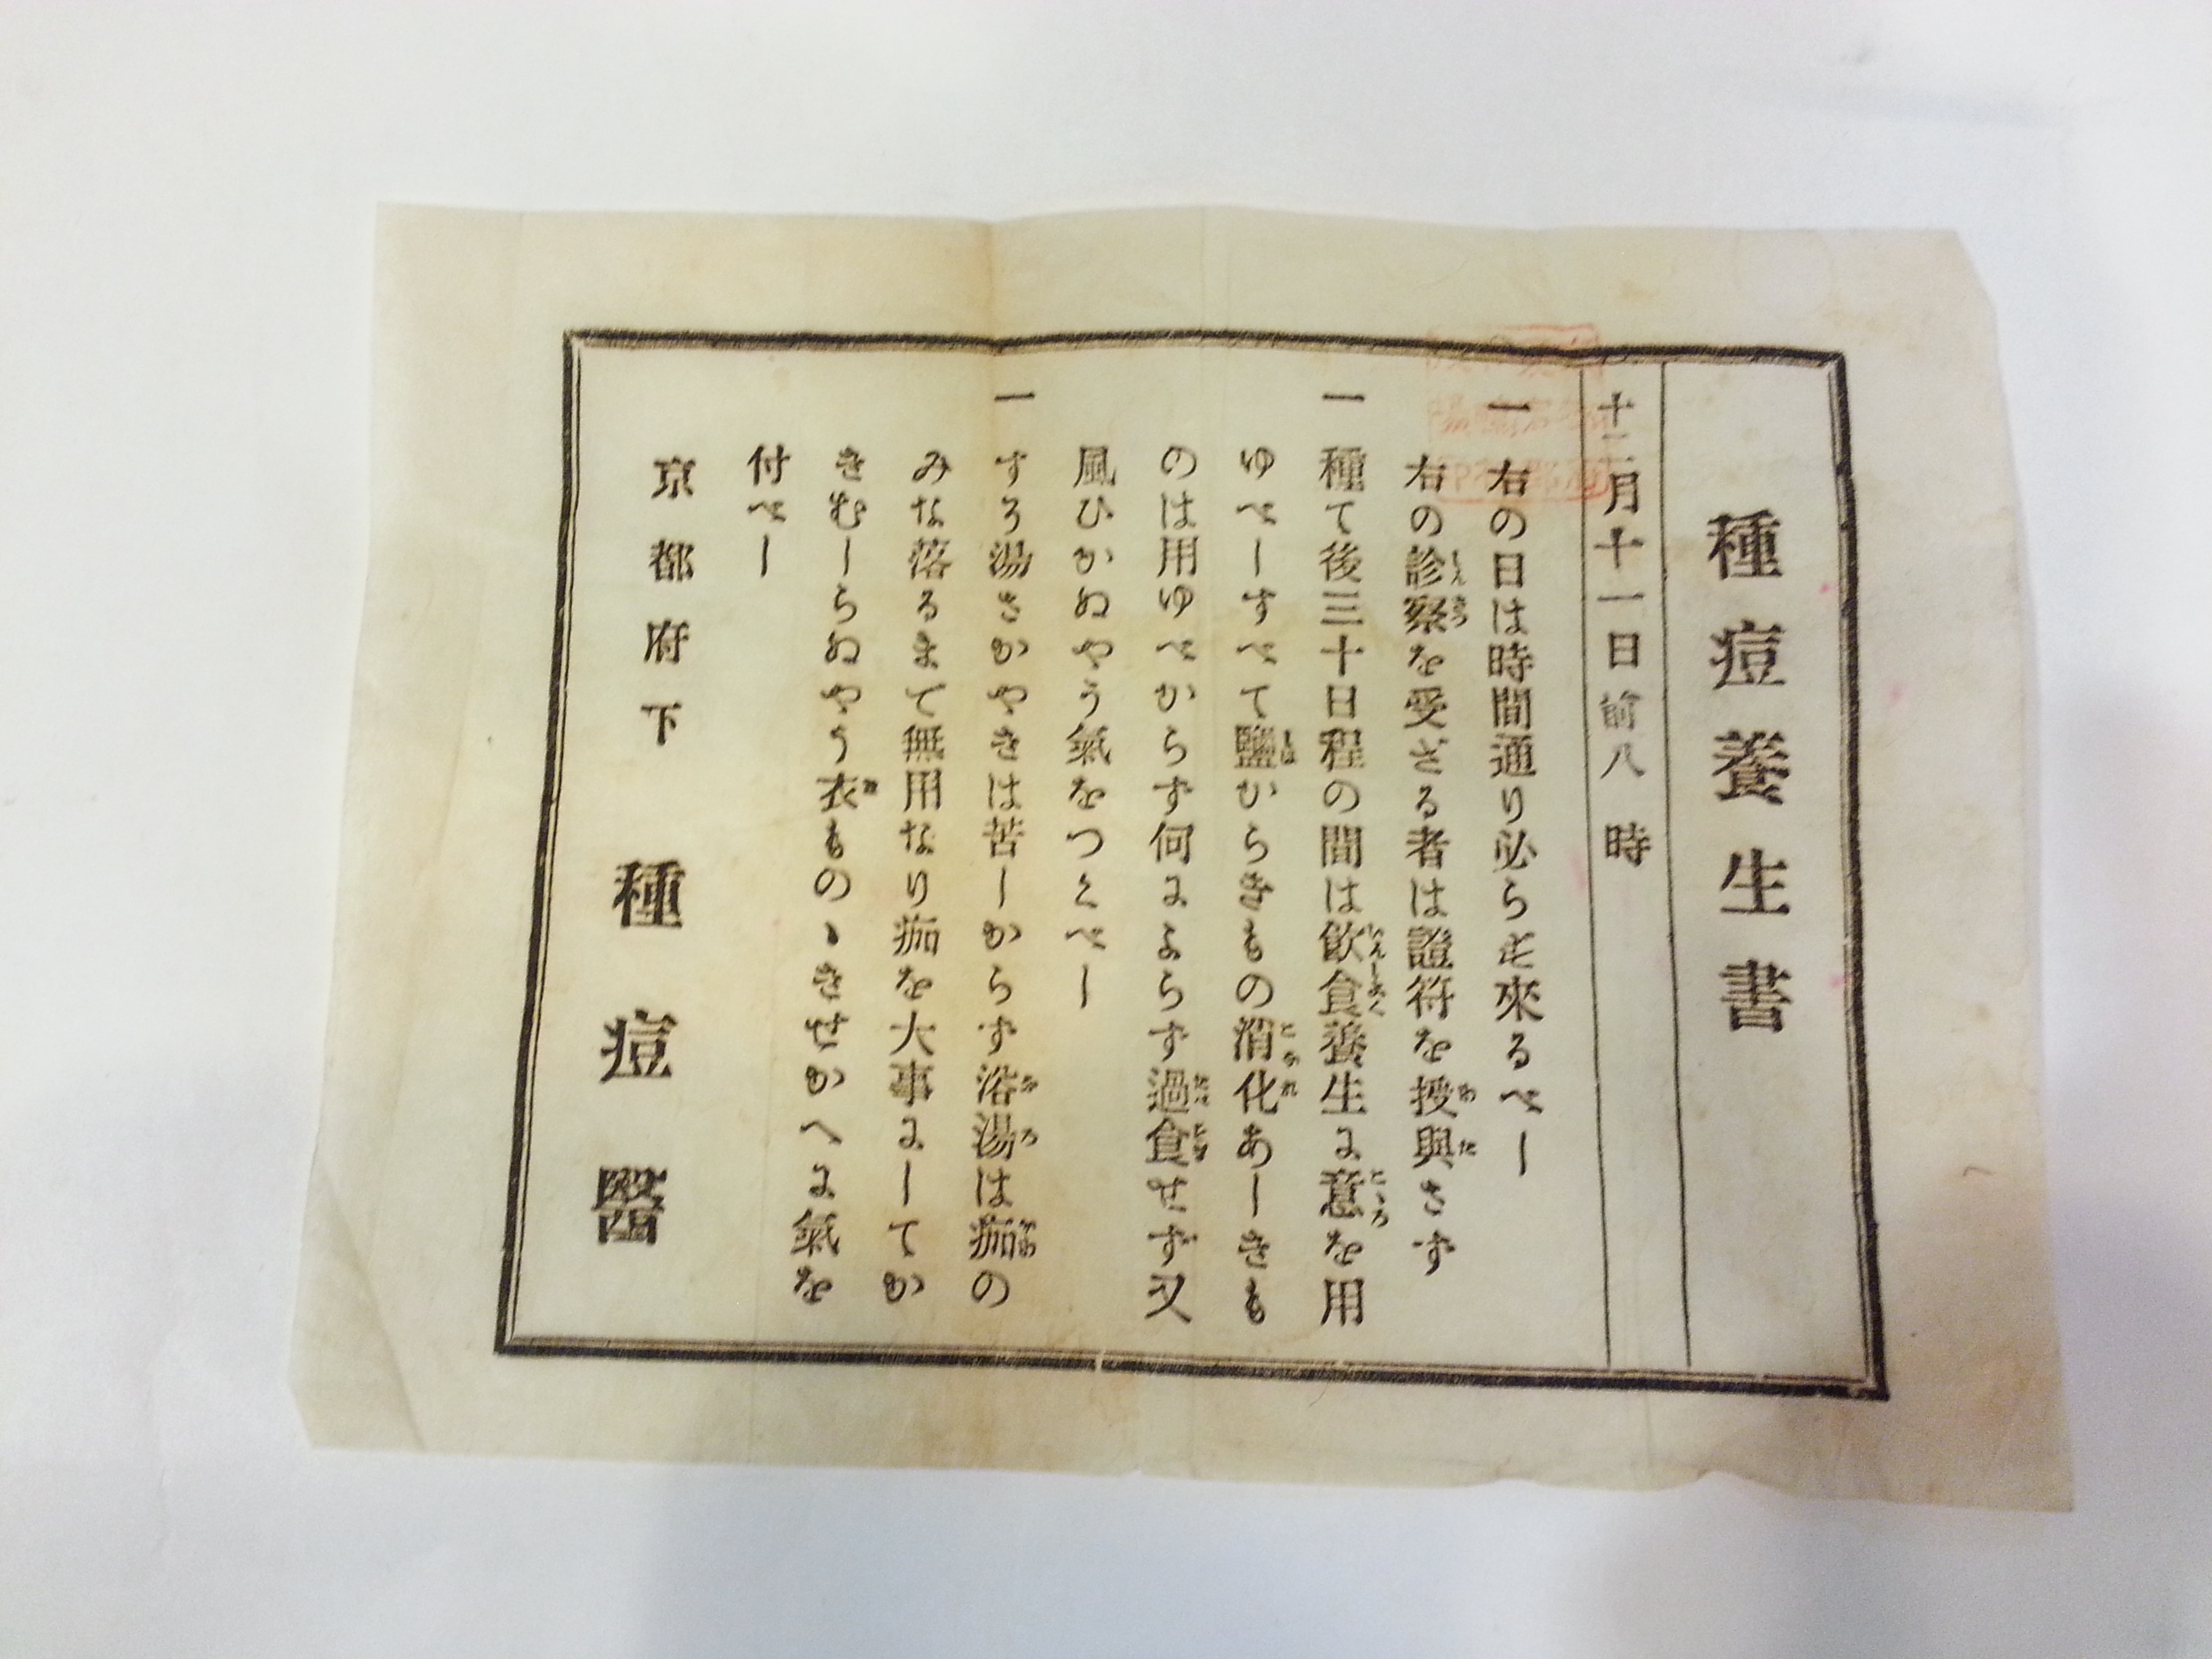 種痘養生書
十二月十一日前八時
一 右の日は時間通り必らず來るべし
右の診察を受ざる者は證符を授與さす
一 種て後三十日程の間は飲食養生に意を用
ゆべしすべて鹽からきもの消化あしきも
のは用ゆべからす何によらす過食せず又
風ひかぬやう氣をつくべし
一 する湯さかやきは苦しからず浴湯は痂の
みな落るまて無用なり痂を大事にしてか
きむしらぬやう衣ものゝきせかへに氣を
付べし
京都府下 種痘醫